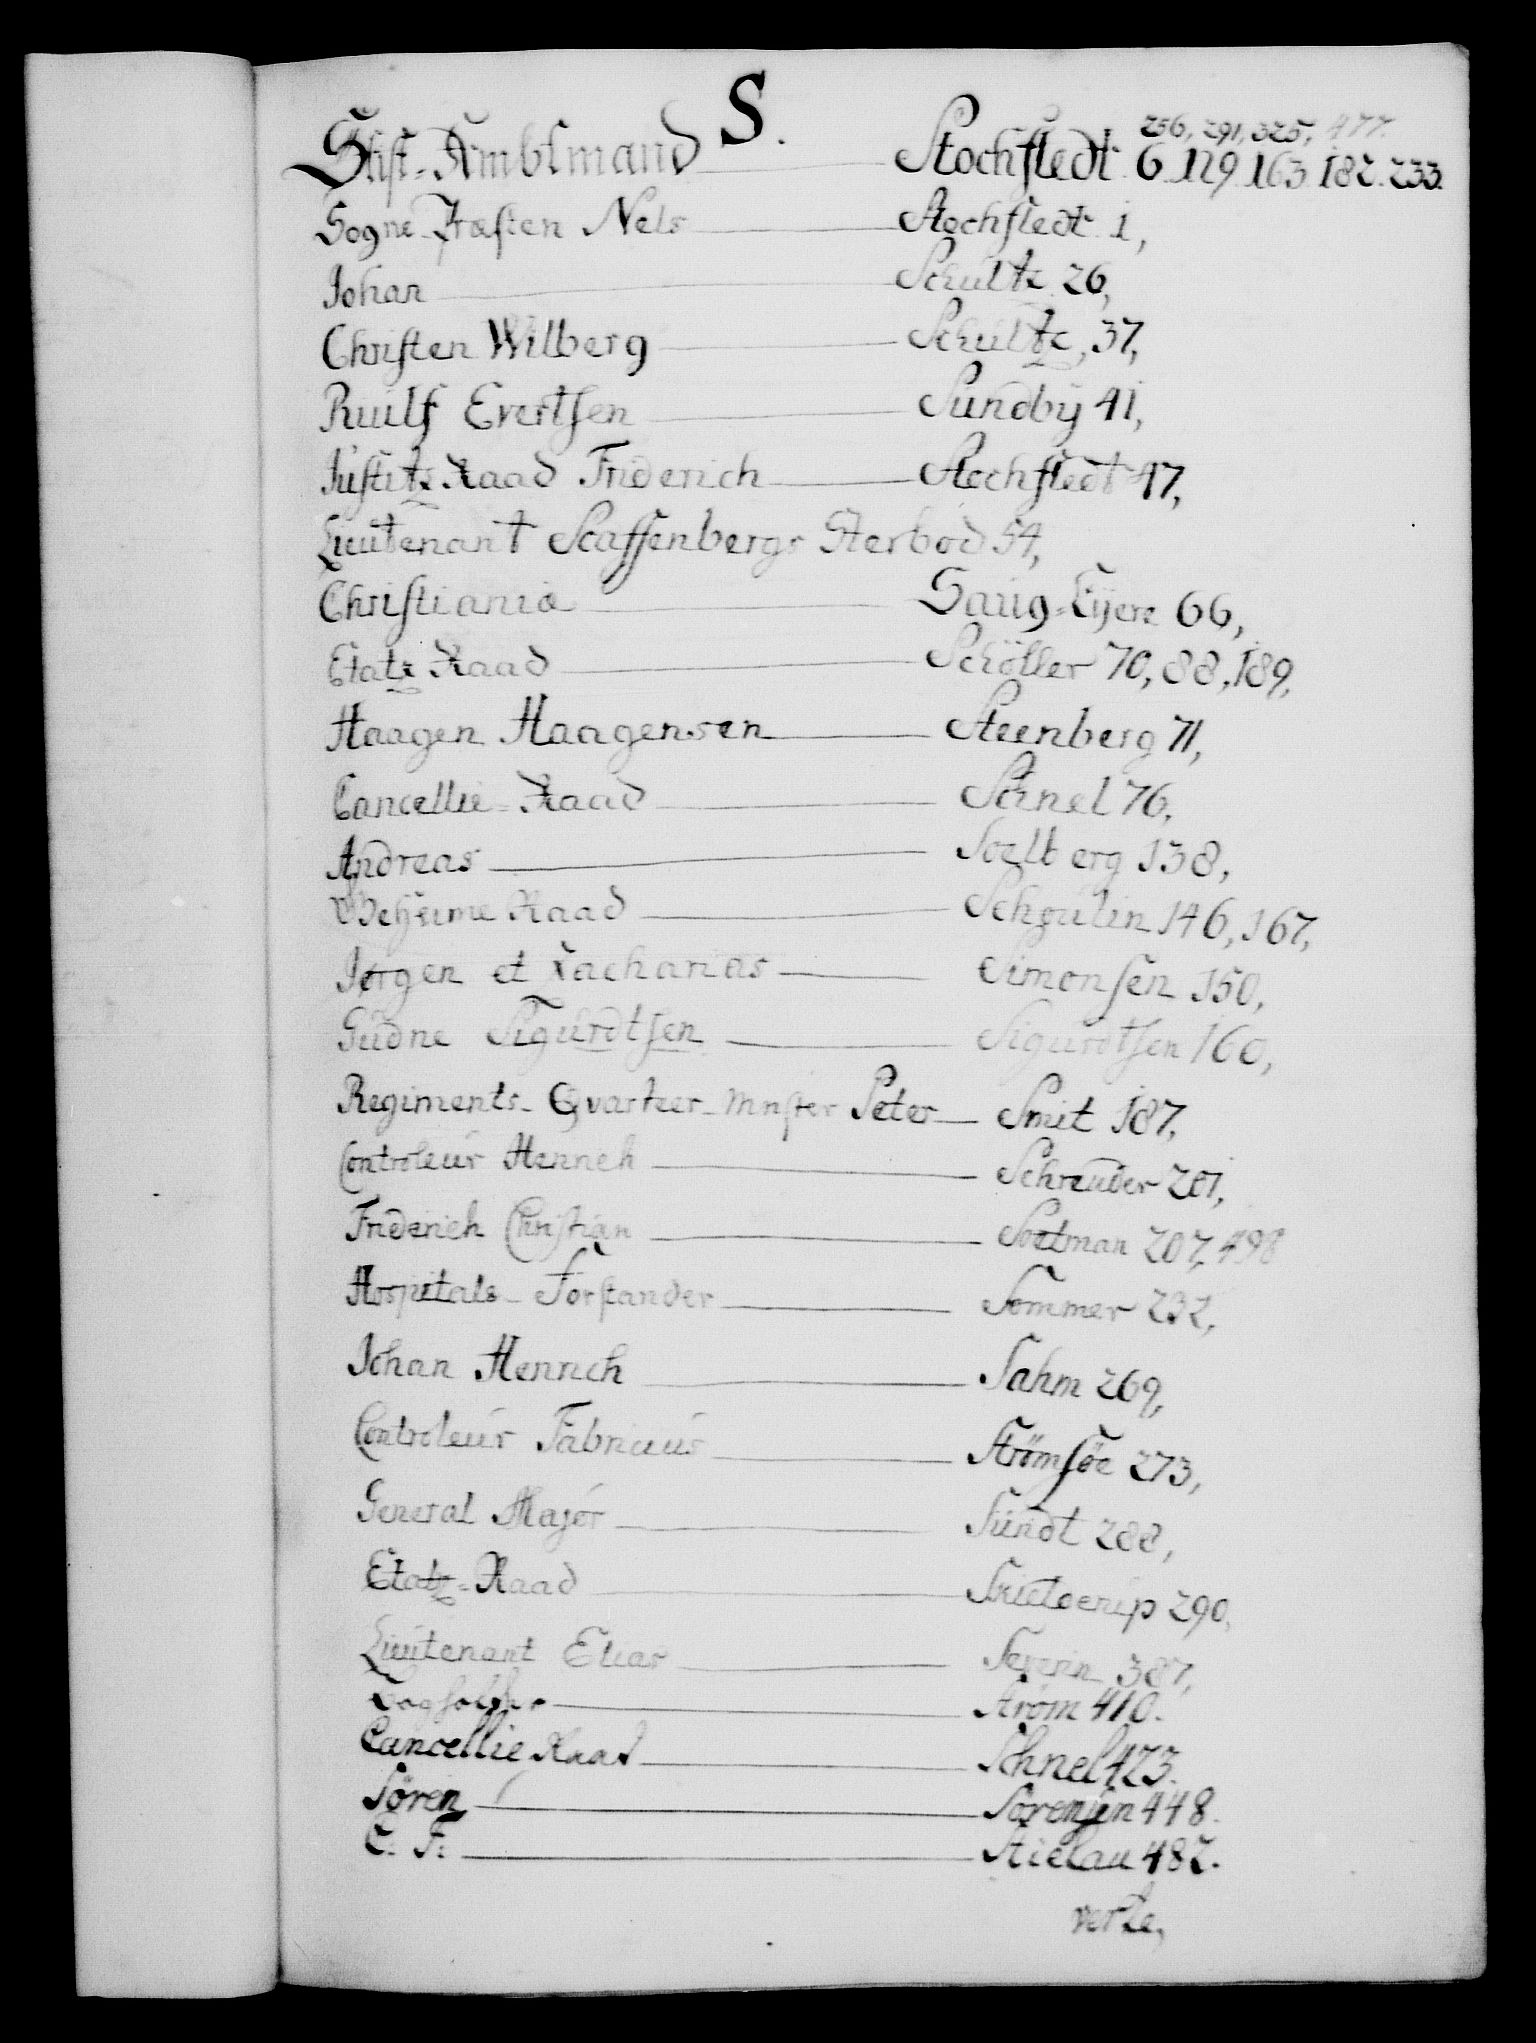 S.
256, 291, 325, 477.
Stift-Ambtmand Stochfledt 6. 129. 163. 182. 233.
Sogne-Præsten Nels Stochfledt 1,
Johan Schultz 26,
Christen Wilberg Schultz, 37,
Ruulf Evertsen Sundby 41,
Justitz Raad Friderich Stochfledt 47,
Lieutenant Scaffenbergs Sterbod 54,
Christiania Saug-Eyere 66,
Etatz Raad Schöller 70, 88, 189,
Haagen Haagensen Steenberg 71,
Cancellie-Raad Schnel 76,
Andreas Soelberg 138,
Geheime Raad Schoulin 146, 167,
Jørgen et Zacharias Simonsen 150,
Gudne Sigurdtsen Sigurdtsen 160,
Regiments-Qvarteer-Mester Peter Smit 187,
Controleur Henrich Schreuder 201,
Friderich Christian Soetman 207, 498
Hospitals-Forstander Sommer 232,
Johan Henrich Sahm 269,
Controleur Fabricius Strömsöe 273,
General Major Sundt 288,
Etatz-Raad 290,
Lieutenant Elias Severin 387,
Bogholder Strøm 410.
Cancellie Raad Schnel 423.
Søren Sørensen 448.
C: F: Stielau 482.
verte,